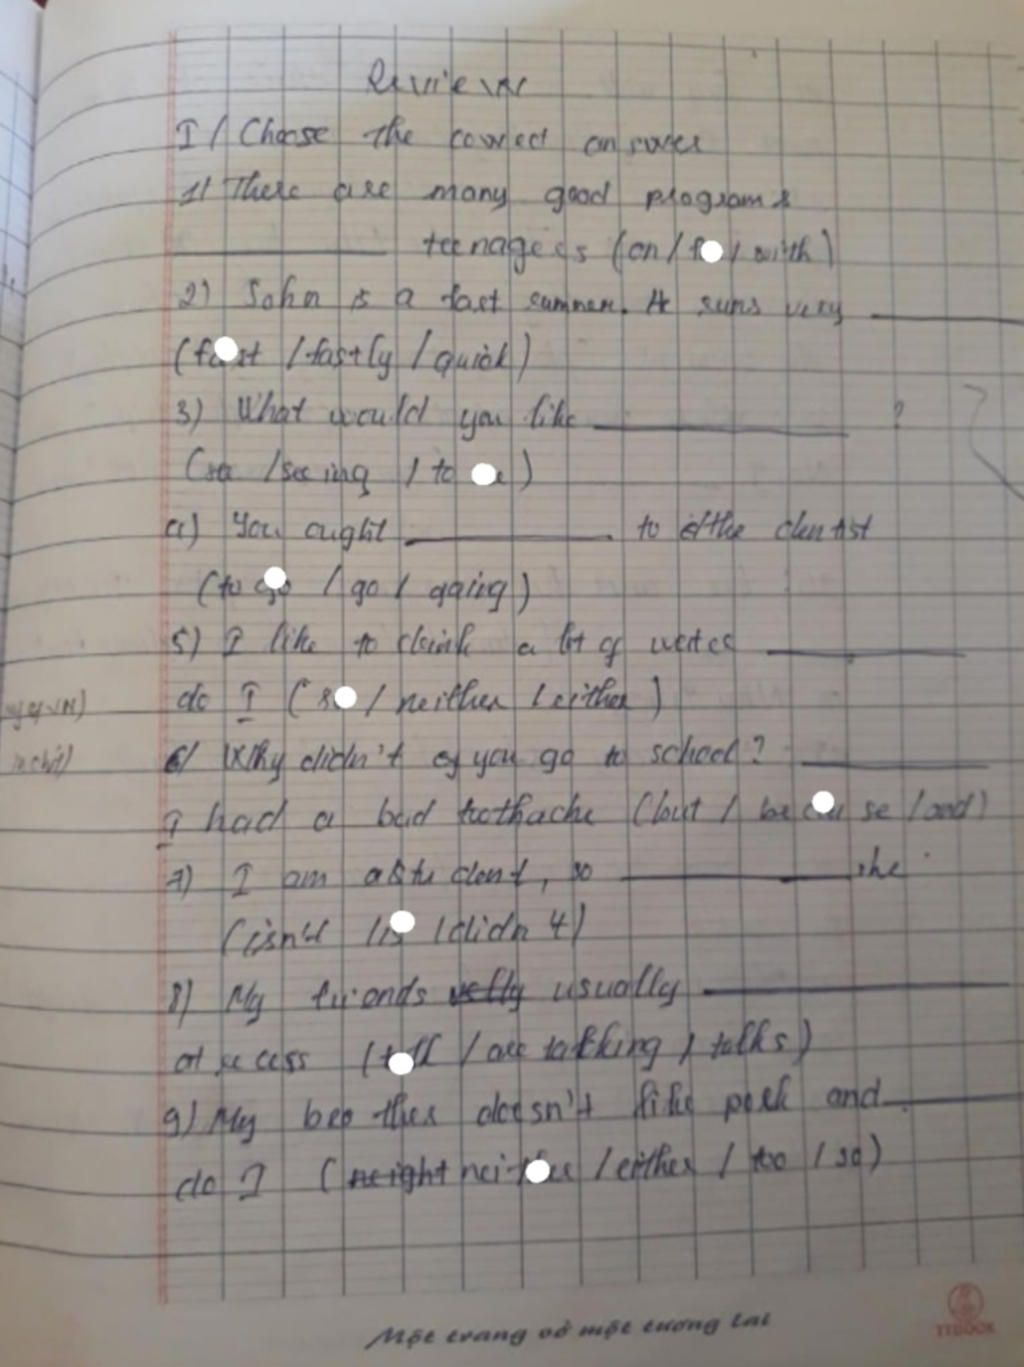 Review
I/ Choose the correct answer
1) There are many good programs
teenagers (on / / with)
2) John is a fast runner. He runs very
( / fastly / quick)
3) What would you like ?
( / seeing / to )
You ought to the dentist
(to / go / going)
5) I like to drink a lot of water
do I ( / neither / either)
6) Why didn't you go to school?
I had a bad toothache (but / / and)
7) I am a student, so she
(isn't / / )
8) My friends usually
at recess ( / are talking / talks)
9) My brother doesn't like pork and
do I ( / either / too / so)
Một trang vở một tương lai